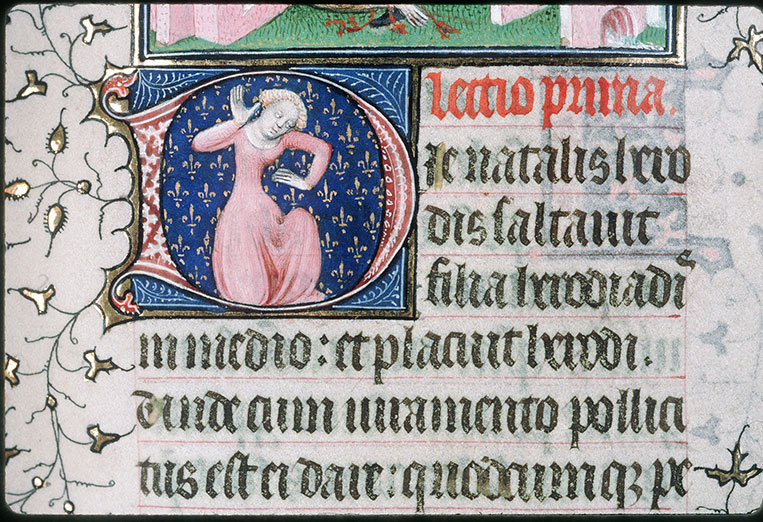 lectio prima.
Die natalis hero
dis saltauit
filia herodiadis
in medio: et placuit herodi.
Vnde cum iuramento pollici
tus est ei dare: quodcumqz pe